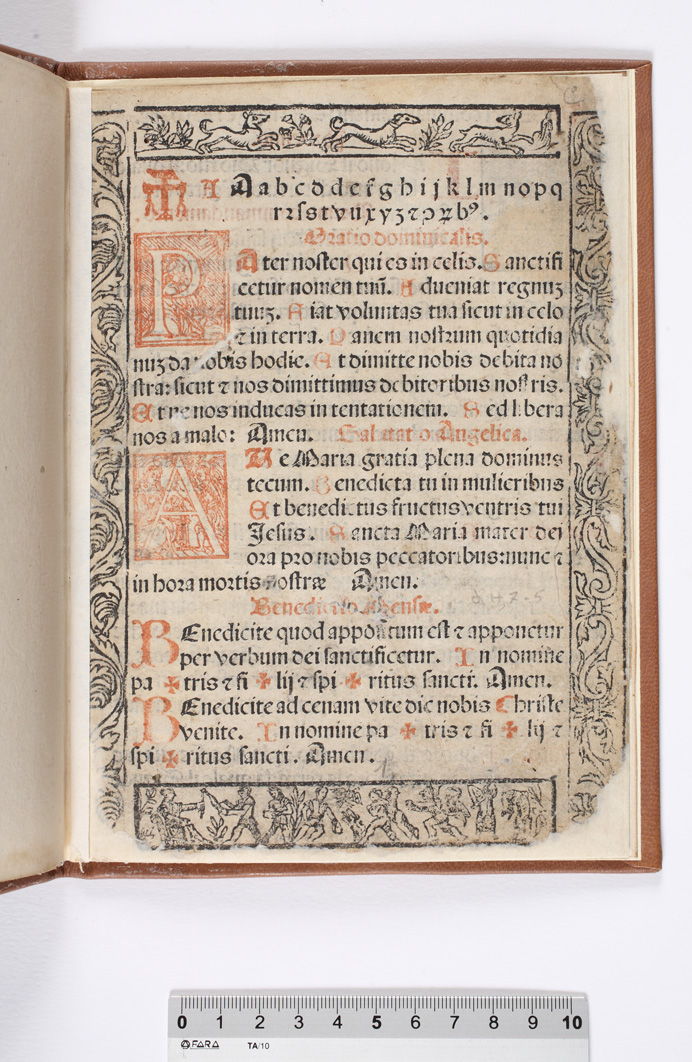 A A a b c d d e f g h i j k l m n o p q
r ꝛ ſ s t v u x y z ⁊ ꝓ ꝝ bꝰ.
Oratio dominicalis.
PAter noſter qui es in celis. Sanctifi
cetur nomen tuū. Adueniat regnuꝫ
tuuꝫ. Fiat voluntas tua ſicut in celo
⁊ in terra. Panem noſtrum quotidia
nuꝫ da nobis hodie. Et dimitte nobis debita no
ſtra: ſicut ⁊ nos dimittimus debitoribus noſtris.
Et ne nos inducas in tentationem. Sed libera
nos a malo: Amen. Salutatio Angelica.
AUe Maria gratia plena dominus
tecum. Benedicta tu in mulieribus
Et benedictus fructus ventris tui
Jeſus. Sancta Maria mater dei
ora pro nobis peccatoribus: nunc ⁊
in hora mortis noſtræ Amen.
Benedictio Menſæ.
BEnedicite quod appoſitum eſt ⁊ apponetur
per verbum dei ſanctificetur. In nomine
pa ✠ tris ⁊ fi ✠ lij ⁊ ſpi ✠ ritus ſancti. Amen.
BEnedicite ad cenam vite dic nobis Chriſte
venite. In nomine pa ✠ tris ⁊ fi ✠ lij ⁊
ſpi ✠ ritus ſancti. Amen.
0 1 2 3 4 5 6 7 8 9 10
FARA TA/10